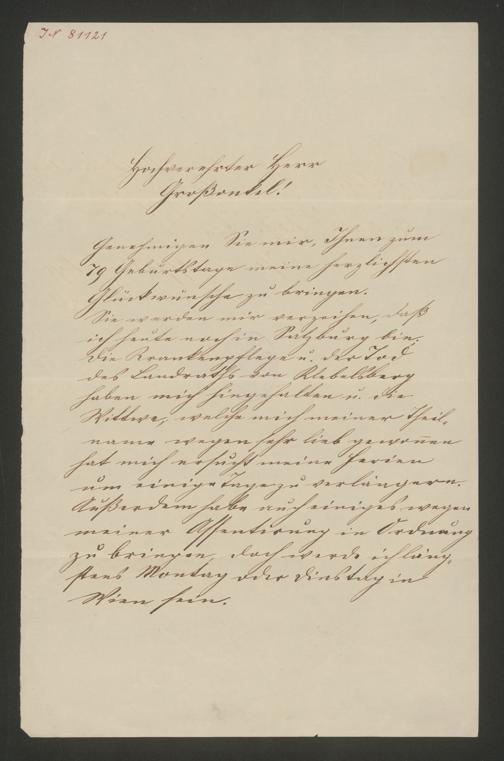 IN 81121
Hochverehrter Herr
Großonkel!
Genehmigen Sie mir, Ihnen zum
79 Geburtstage meine herzlichsten
Glückwünsche zu bringen.
Sie werden mir verzeihen, daß
ich heute noch in Salzburg bin.
Die Krankenpflege u. der Tod
des Landraths von Klebelsberg
haben mich hingehalten u. die
Wittwe, welche mich meiner Theil-
name wegen sehr lieb gewonnen
hat mich ersucht meine Ferien
um einige Tage zu verlängern.
Außerdem habe auch einiges wegen
meiner Assentirung in Ordnung
zu bringen, doch werde ich läng-
stens Montag oder Dinstag in
Wien sein.